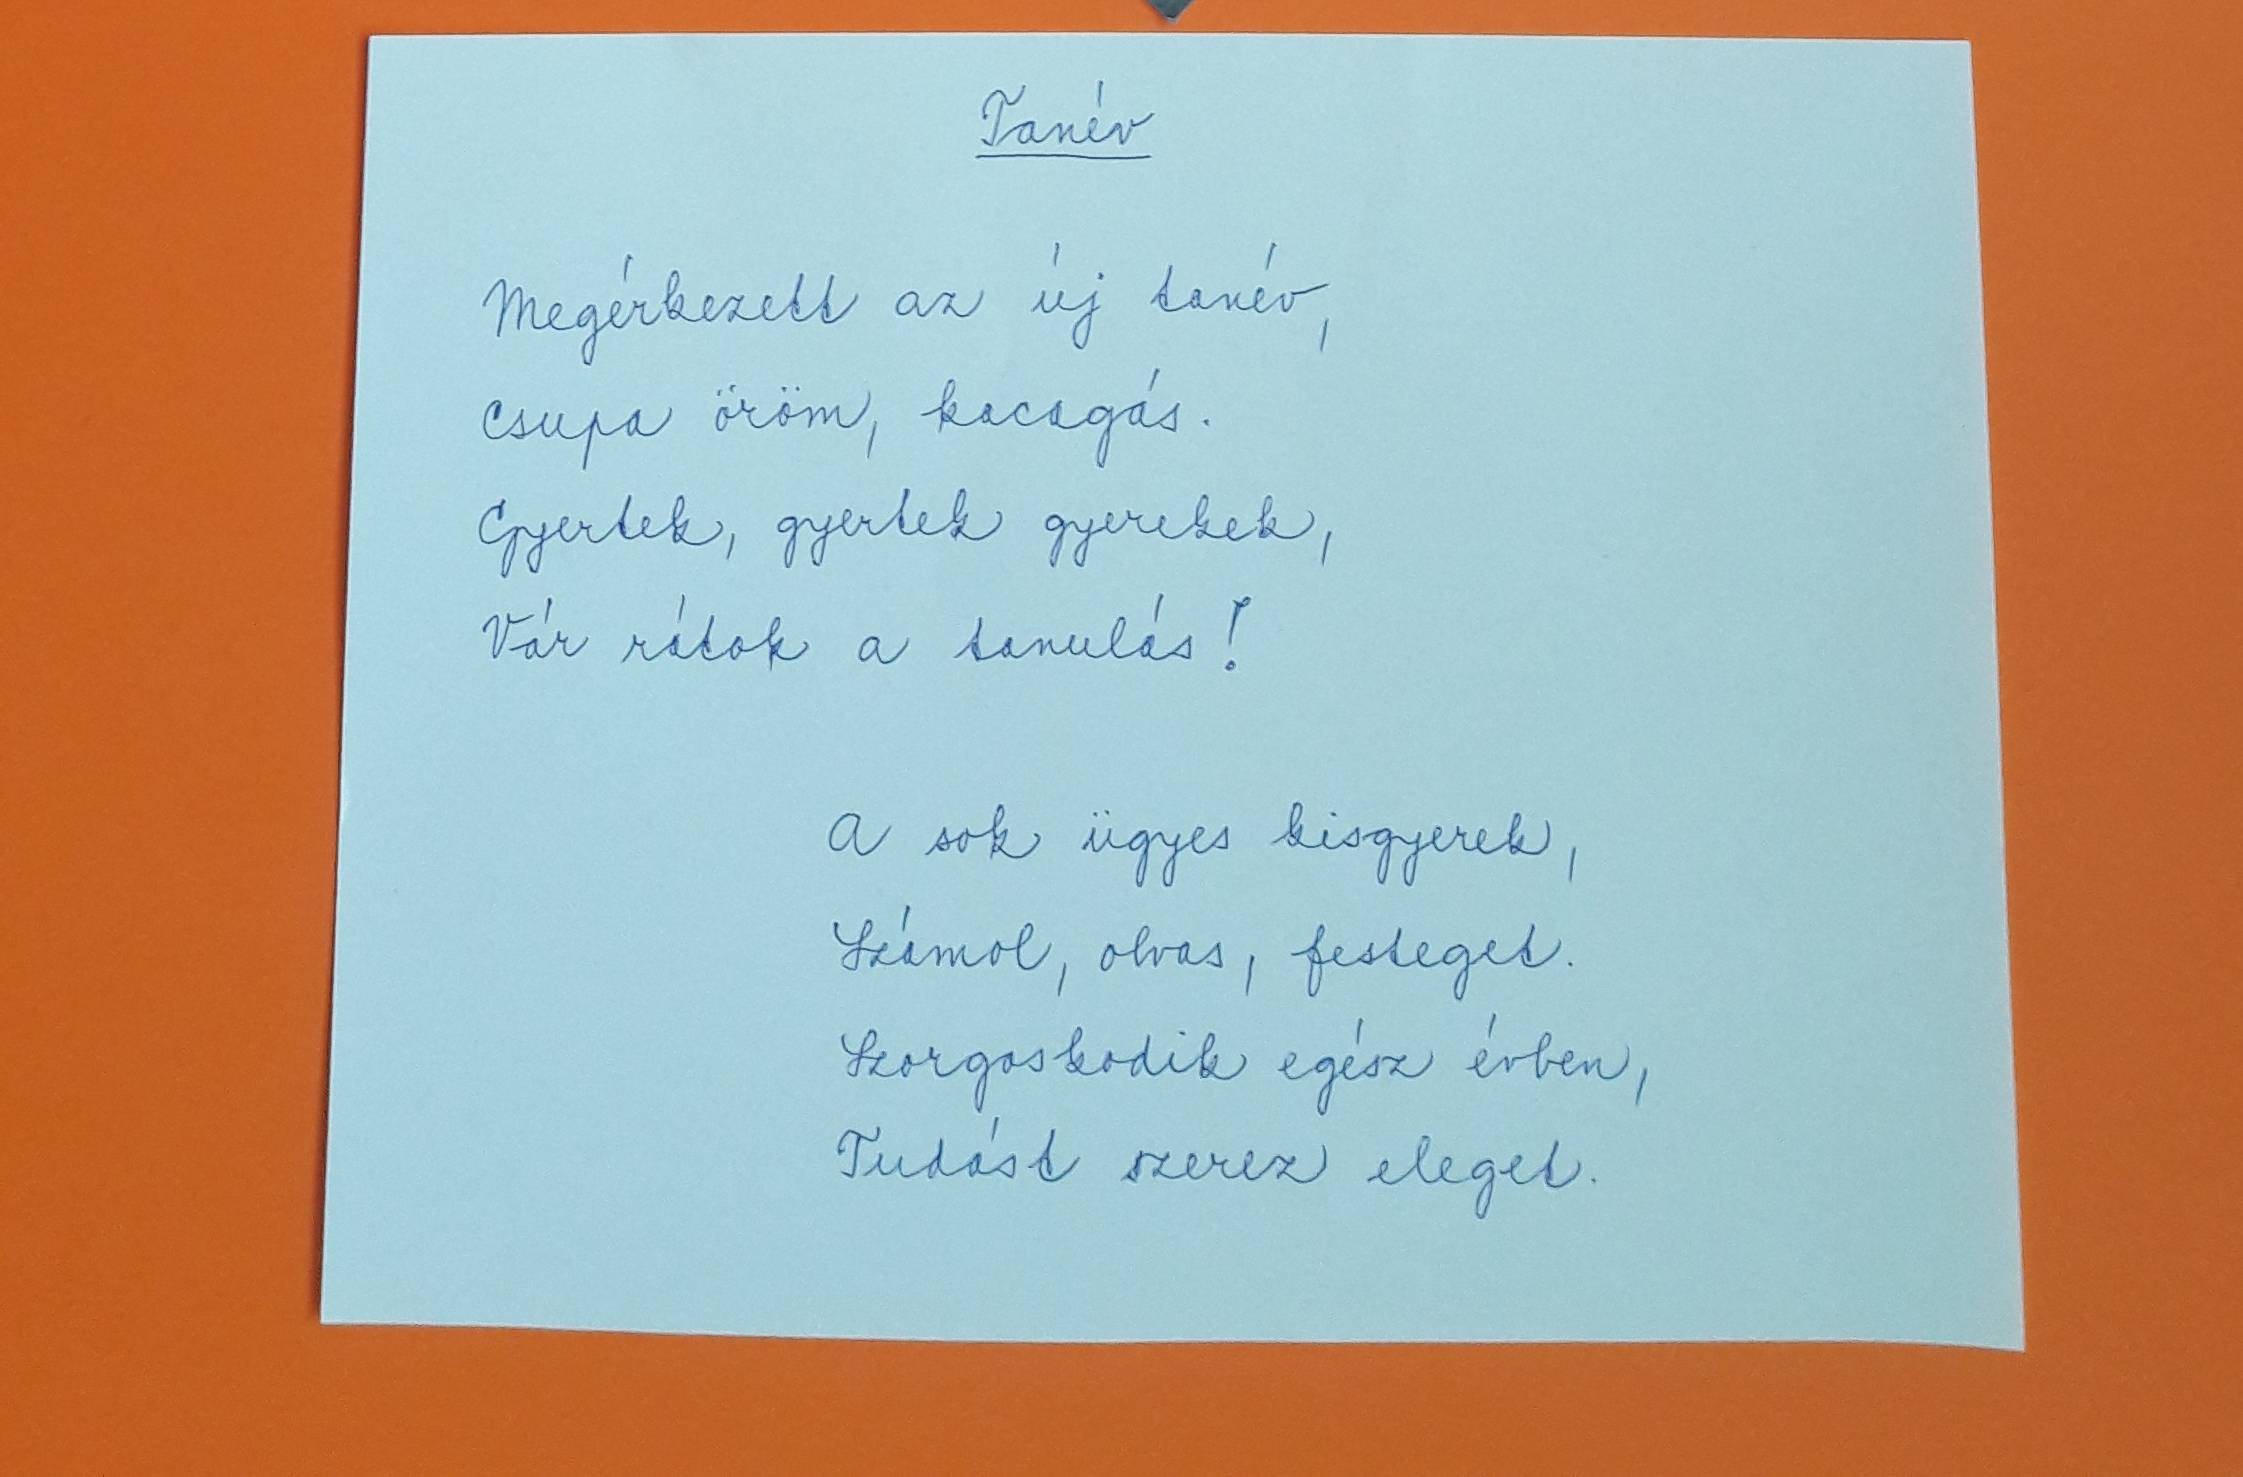 Tanév
Megérkezett az új tanév,
Csupa öröm, kacagás.
Gyertek, gyertek gyerekek,
Vár rátok a tanulás!
A sok ügyes kisgyerek,
Számol, olvas, festeget.
Szorgoskodik egész évben,
Tudást szerez eleget.